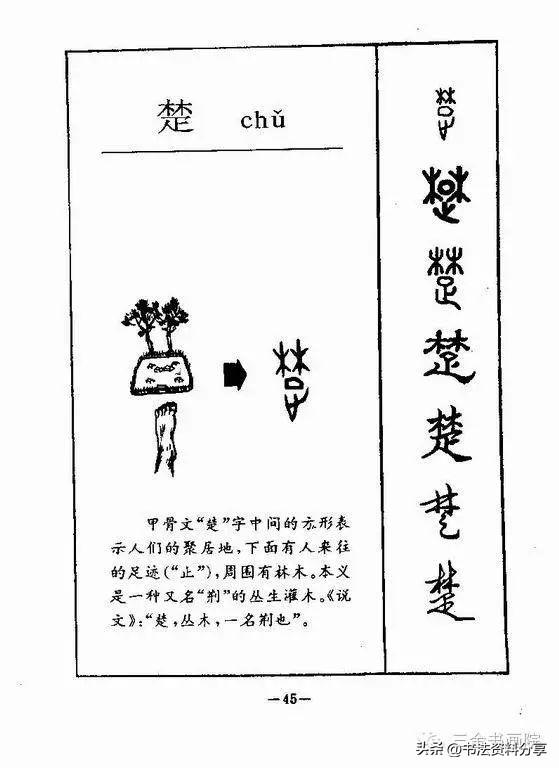 楚 chǔ
甲骨文“楚”字中间的方形表
示人们的聚居地，下面有人来往
的足迹(“止”)，周围有林木。本义
是一种又名“荆”的丛生灌木。《说
文》：“楚，丛木，一名荆也”。
楚
楚
楚
楚
楚
楚
楚
—45—
头条 @书法资料分享